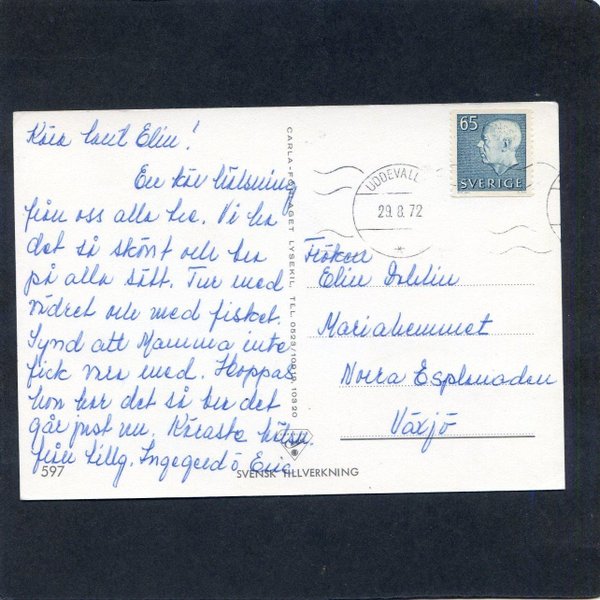 Kära tant Elin!
En kär hälsning
från oss alla tre. Vi ha
det så skönt och bra
på alla sätt. Tur med
vädret och med fisket.
Synd att Mamma inte
fick vara med. Hoppas
hon har det så bra det
går just nu. Käraste hälsn.
från Lillg. Ingegerd o Eric
597
SVENSK TILLVERKNING
CARLA-FÖRLAGET LYSEKIL. TEL. 0523/10919, 10320
65
SVERIGE
UDDEVALL
29.8.72
Fröken
Elin
Mariahemmet
Norra Esplanaden
Växjö